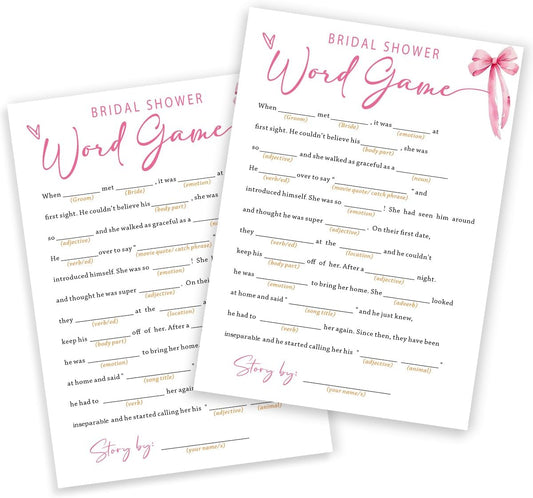 BRIDAL SHOWER
Word Game
When ________ met ________ , it was ________ at
(Groom) (Bride) (emotion)
first sight. He couldn't believe his ________ , she was
(body part)
so ________ and she walked as graceful as a ________
(adjective) (noun)
He ________ over to say " ________________ " and
(verb/ed) (movie quote/ catch phrase)
introduced himself. She was so ________ ! She had seen him around
(emotion)
and thought he was super ________ . On their first date,
(adjective)
they ________ at the ________ and he couldn't
(verb/ed) (location)
keep his ________ off of her. After a ________ night.
(body part) (adjective)
he was ________ to bring her home. She ________ looked
(emotion) (adverb)
at home and said " ________________ " and he just knew,
(song title)
he had to ________ her again. Since then, they have been
(verb)
inseparable and he started calling his " ________ ________ "
(adjective) (animal)
Story by: ________________
(your name/s)
BRIDAL SHOWER
Word Game
When ________ met ________ , it was ________
(Groom) (Bride) (emotion)
first sight. He couldn't believe his ________ , she was
(body part)
so ________ and she walked as graceful as a
(adjective)
He ________ over to say " ________________ "
(verb/ed) (movie quote/ catch phrase)
introduced himself. She was so ________ ! She
(emotion)
and thought he was super ________ . On their
(adjective)
they ________ at the ________
(verb/ed) (location)
keep his ________ off of her. After a
(body part)
he was ________ to bring her home.
(emotion)
at home and said " ________________ "
(song title)
he had to ________ her again
(verb)
inseparable and he started calling her his " ________ ________
(adjective) (animal)
Story by: ________________
(your name/s)